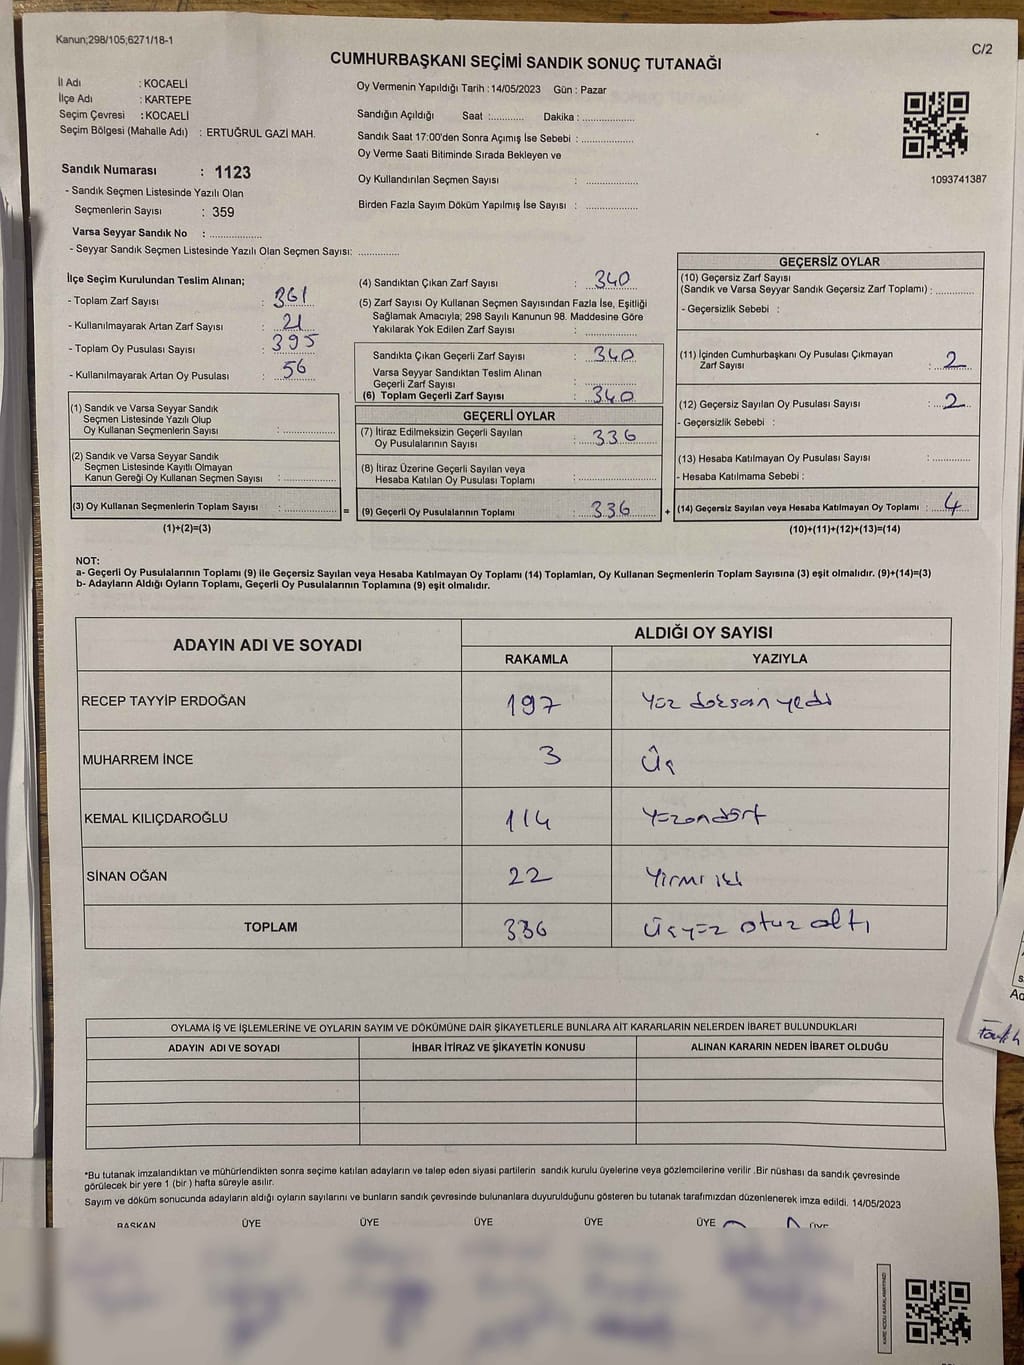 Kanun;298/105;6271/18-1
C/2
CUMHURBAŞKANI SEÇİMİ SANDIK SONUÇ TUTANAĞI
İl Adı : KOCAELİ
İlçe Adı : KARTEPE
Seçim Çevresi : KOCAELİ
Seçim Bölgesi (Mahalle Adı) : ERTUĞRUL GAZİ MAH.
Oy Vermenin Yapıldığı Tarih : 14/05/2023 Gün : Pazar
Sandığın Açıldığı Saat :........... Dakika : .................
Sandık Saat 17:00'den Sonra Açımış İse Sebebi : .................
Oy Verme Saati Bitiminde Sırada Bekleyen ve
Oy Kullandırılan Seçmen Sayısı : .................
Birden Fazla Sayım Döküm Yapılmış İse Sayısı : .................
1093741387
Sandık Numarası : 1123
- Sandık Seçmen Listesinde Yazılı Olan
Seçmenlerin Sayısı : 359
Varsa Seyyar Sandık No : .................
- Seyyar Sandık Seçmen Listesinde Yazılı Olan Seçmen Sayısı: .............
İlçe Seçim Kurulundan Teslim Alınan;
- Toplam Zarf Sayısı : 361
- Kullanılmayarak Artan Zarf Sayısı : 21
- Toplam Oy Pusulası Sayısı : 395
- Kullanılmayarak Artan Oy Pusulası : 56
(1) Sandık ve Varsa Seyyar Sandık
Seçmen Listesinde Yazılı Olup
Oy Kullanan Seçmenlerin Sayısı : .................
(2) Sandık ve Varsa Seyyar Sandık
Seçmen Listesinde Kayıtlı Olmayan
Kanun Gereği Oy Kullanan Seçmen Sayısı : .................
(3) Oy Kullanan Seçmenlerin Toplam Sayısı : ................. =
(1)+(2)=(3)
(4) Sandıktan Çıkan Zarf Sayısı : 340
(5) Zarf Sayısı Oy Kullanan Seçmen Sayısından Fazla İse, Eşitliği
Sağlamak Amacıyla; 298 Sayılı Kanunun 98. Maddesine Göre
Yakılarak Yok Edilen Zarf Sayısı : .................
Sandıkta Çıkan Geçerli Zarf Sayısı : 340
Varsa Seyyar Sandıktan Teslim Alınan
Geçerli Zarf Sayısı : .................
(6) Toplam Geçerli Zarf Sayısı : 340
GEÇERLİ OYLAR
(7) İtiraz Edilmeksizin Geçerli Sayılan
Oy Pusulalarının Sayısı : 336
(8) İtiraz Üzerine Geçerli Sayılan veya
Hesaba Katılan Oy Pusulası Toplamı : .................
(9) Geçerli Oy Pusulalarının Toplamı : 336 +
GEÇERSİZ OYLAR
(10) Geçersiz Zarf Sayısı
(Sandık ve Varsa Seyyar Sandık Geçersiz Zarf Toplamı) : .............
- Geçersizlik Sebebi :
(11) İçinden Cumhurbaşkanı Oy Pusulası Çıkmayan
Zarf Sayısı : 2
(12) Geçersiz Sayılan Oy Pusulası Sayısı : 2
- Geçersizlik Sebebi :
(13) Hesaba Katılmayan Oy Pusulası Sayısı : .............
- Hesaba Katılmama Sebebi :
(14) Geçersiz Sayılan veya Hesaba Katılmayan Oy Toplamı : 4
(10)+(11)+(12)+(13)=(14)
NOT:
a- Geçerli Oy Pusulalarının Toplamı (9) ile Geçersiz Sayılan veya Hesaba Katılmayan Oy Toplamı (14) Toplamları, Oy Kullanan Seçmenlerin Toplam Sayısına (3) eşit olmalıdır. (9)+(14)=(3)
b- Adayların Aldığı Oyların Toplamı, Geçerli Oy Pusulalarının Toplamına (9) eşit olmalıdır.
ADAYIN ADI VE SOYADI
ALDIĞI OY SAYISI
RAKAMLA YAZIYLA
RECEP TAYYİP ERDOĞAN 197 Yüz doksan yedi
MUHARREM İNCE 3 Üç
KEMAL KILIÇDAROĞLU 114 Yüzondört
SİNAN OĞAN 22 Yirmi iki
TOPLAM 336 Üçyüz otuz altı
OYLAMA İŞ VE İŞLEMLERİNE VE OYLARIN SAYIM VE DÖKÜMÜNE DAİR ŞİKAYETLERLE BUNLARA AİT KARARLARIN NELERDEN İBARET BULUNDUKLARI
ADAYIN ADI VE SOYADI İHBAR İTİRAZ VE ŞİKAYETİN KONUSU ALINAN KARARIN NEDEN İBARET OLDUĞU
*Bu tutanak imzalandıktan ve mühürlendikten sonra seçime katılan adayların ve talep eden siyasi partilerin sandık kurulu üyelerine veya gözlemcilerine verilir .Bir nüshası da sandık çevresinde
görülecek bir yere 1 (bir ) hafta süreyle asılır.
Sayım ve döküm sonucunda adayların aldığı oyların sayılarını ve bunların sandık çevresinde bulunanlara duyurulduğunu gösteren bu tutanak tarafımızdan düzenlenerek imza edildi. 14/05/2023
BAŞKAN ÜYE ÜYE ÜYE ÜYE ÜYE ÜYE